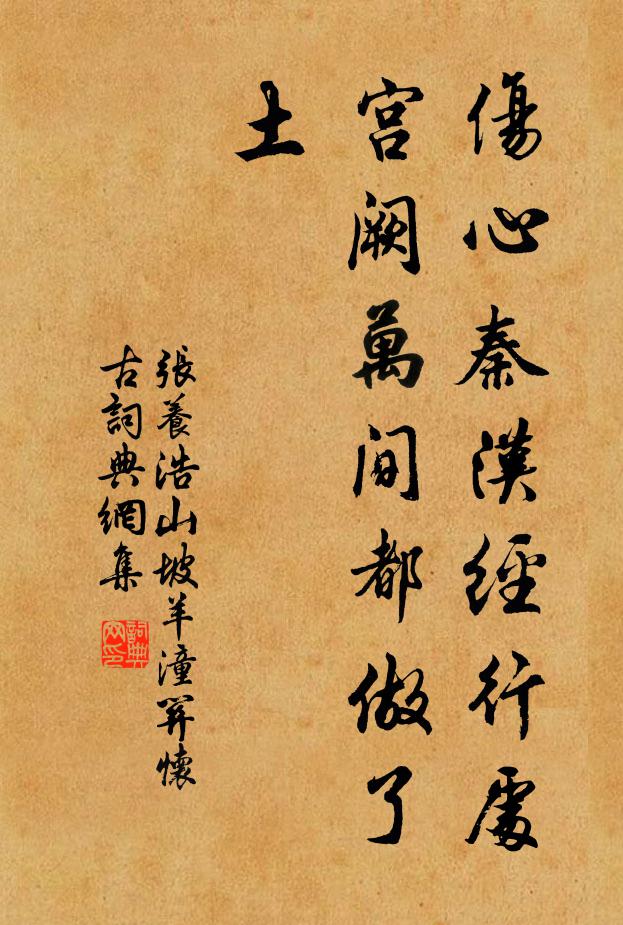 傷心秦漢經行處
宮闕萬間都做了
土
張養浩山坡羊潼關懷
古詞典網集
詞典
网印